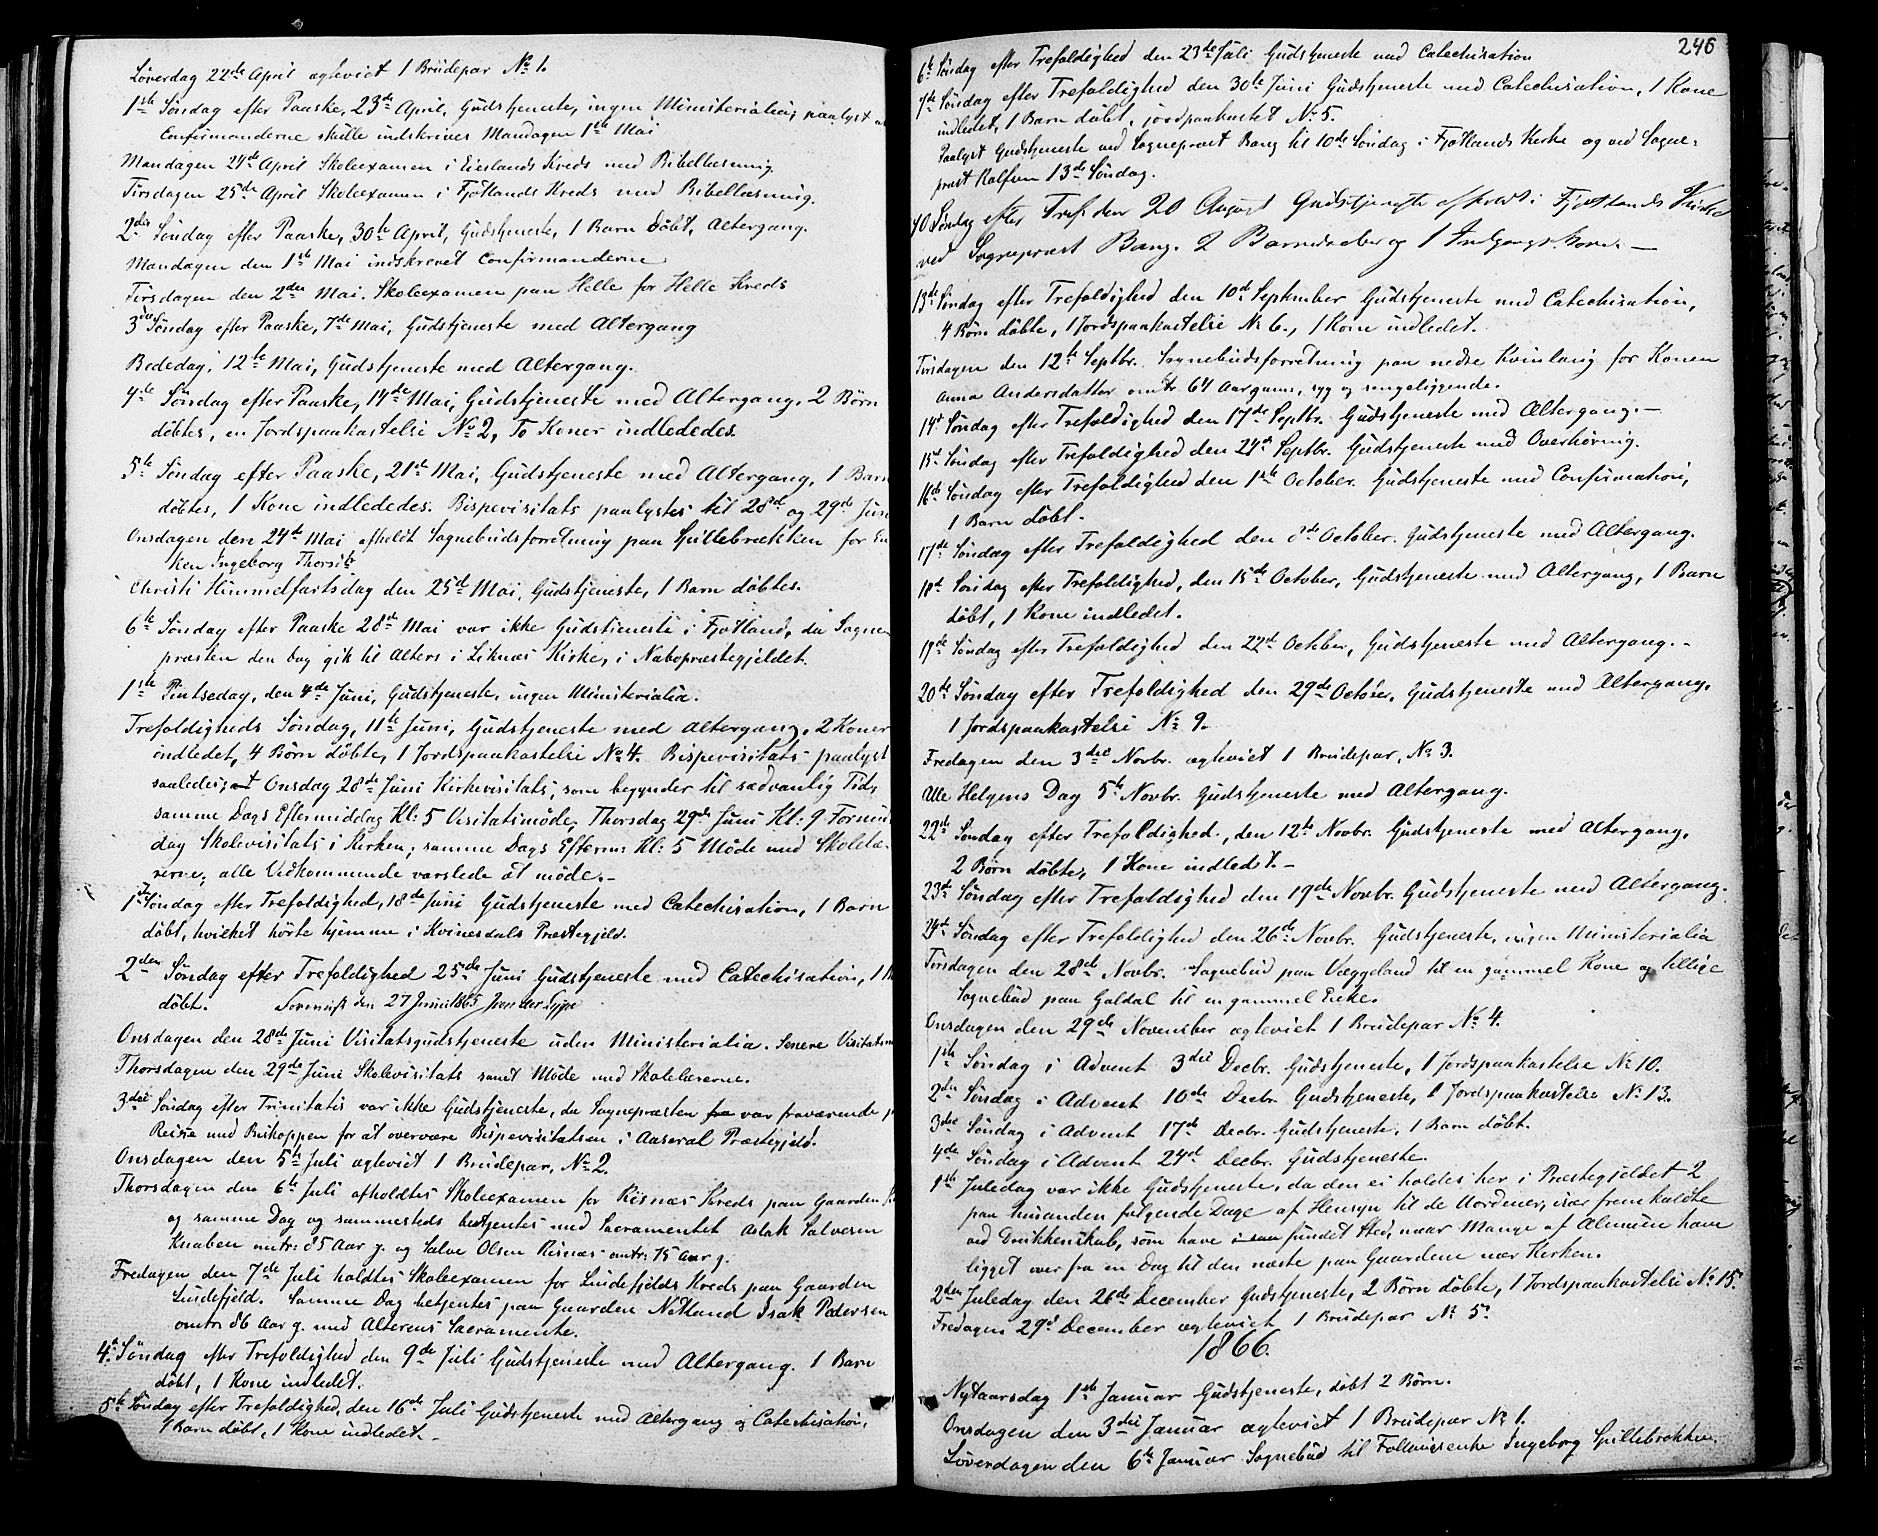 Løverdag 22de April ægteviet 1 Brüdepar No 1.
1ste Søndag efter Paaske, 23de April, Gudstjeneste, ingen Ministerialia; paalyst at
Confirmanderne skulle indskrives Mandagen 1ste Mai
Mandagen 24de April Skoleexamen i Eieslands Kreds med Bibellæsning.
Tirsdagen 25de April Skoleexamen i Fjotlands Kreds med Bibellæsning.
2den Søndag efter Paaske, 30te April, Gudstjeneste, 1 Barn døbt, Altergang.
Mandagen den 1ste Mai indskrevet Confirmanderne
Tirsdagen den 2den Mai. Skoleexamen paa Helle for Helle Kreds
3die Søndag efter Paaske, 7de Mai, Gudstjeneste med Altergang
Bededag, 12te Mai, Gudstjeneste med Altergang.
4de Søndag efter Paaske, 14de Mai, Gudstjeneste med Altergang, 2 Børn
døbtes, en Jordspaakastelse No 2, To Koner indlededes.
5te Søndag efter Paaske, 21de Mai, Gudstjeneste med Altergang, 1 Barn
døbtes, 1 Kone indlededes. Bispevisitats paalystes til 28de og 29de Juni
Onsdagen den 24de Mai afholdt Sognebudsforretning paa Spillebrækken for En
ken Ingeborg
Christi Himmelfartsdag den 25de Mai, Gudstjeneste, 1 Barn døbtes.
6te Søndag efter Paaske 28de Mai var ikke Gudstjeneste i Fjotland, da Sogne-
præsten den Dag gik til Alters i Liknæs Kirke, i Nabopræstegjeldet.
1ste Pintsedag, den 4de Juni, Gudstjeneste, ingen Ministerialia.
Trefoldigheds Søndag, 11te Juni, Gudstjeneste med Altergang, 2 Koner
indledet, 4 Børn døbte, 1 Jordspaakastelse No 4. Bispevisitats paalyst
saaledes; at Onsdag 28de Juni Kirkevisitats, som begynder til sædvanlig Tid,
samme Dags Eftermiddag Kl: 5 Visitatsmøde; Thorsdag 29de Juni Kl: 9 Formid
dag Skolevisitats i Kirken; samme Dags Efterm: Kl: 5 Møde med Skolelæ-
rerne; alle Vedkommende varslede at møde.-
1ste Søndag efter Trefoldighed, 18de Juni Gudstjeneste med Catechisation, 1 Barn
døbt, hvilket hørte hjemme i Kvinesdals Præstegjeld.
2den Søndag efter Trefoldighed 25de Juni Gudstjeneste med Catechisation, 1
døbt. den 27 Juni 1865
Onsdagen den 28de Juni Visitatsgudstjeneste uden Ministerialia. Senere Visitatsm
Thorsdagen den 29de Juni Skolevisitats samt Møde med Skolelærerne.
3die Søndag efter Trinitatis var ikke Gudstjeneste, da Sognepræsten var fraværende p
Reise med Biskoppen for at overvære Bispevisitatsen i Aaseral Præstegjeld.
Onsdagen den 5te Juli ægteviet 1 Brudepar, No 2.
Thorsdagen den 6te Juli afholdtes Skoleexamen for Risnæs Kreds paa Gaarden
og samme Dag og sammesteds betjentes med Sacramentet Aslak Salvesen
Knaben omtr: 85 Aar g. og Salve Olsen Risnæs omtr: 75 Aar g.
Fredagen den 7de Juli holdtes Skoleexamen for Lindefjelds Kreds paa Gaarden
Lindefjeld. Samme Dag betjentes paa Gaarden Netland Isak Pedersen
omtr. 86 Aar g. med Alterens Sacramente.
4de Søndag efter Trefoldighed den 9de Juli Gudstjeneste med Altergang. 1 Barn
døbt, 1 Kone indledet.
5te Søndag efter Trefoldighed, den 16de Juli Gudstjeneste med Altergang og Catechisation,
1 Barn døbt, 1 Kone indledet.-
246
6te Søndag efter Trefoldighed den 23de Juli Gudstjeneste med Catechisation
7de Søndag efter Trefoldighed den 30te Juni Gudstjeneste med Catechisation, 1 Kone
indledet, 1 Barn døbt, jordpaakastet No 5.
Paalyst Gudstjeneste ved Sognepræst Bang til 10de Søndag i Fjotlands Kirke og ved Sogne-
præst Kalfsen 13de Søndag.
10 Søndag efter Tref. den 20 August Gudstjeneste afholdt i Fjotlands Kirke
ved Sognepræst Bang. 2 Barnedaab og 1 Indgangskone. —
13de Søndag efter Trefoldighed den 10de September Gudstjeneste med Catechisation,
4 Børn døbte, 1 Jordspaakastelse No 6., 1 Kone indledet.
Tirsdagen den 12te Septbr. Sognebudsforretning paa nedre Kvinlaug for Konen
Anna Andersdatter omtr. 64 Aar gamm., syg og sengeliggende.
14de Søndag efter Trefoldighed den 17de Septbr. Gudstjeneste med Altergang.—
15de Søndag efter Trefoldighed den 24de Septbr. Gudstjeneste med Overhøring.
16de Søndag efter Trefoldighed den 1ste October. Gudstjeneste med Confirmation,
1 Barn døbt.
17de Søndag efter Trefoldighed den 8de October. Gudstjeneste med Altergang.
18de Søndag efter Trefoldighed, den 15de October, Gudstjeneste med Altergang, 1 Barn
døbt, 1 Kone indledet.
19de Søndag efter Trefoldighed den 22de October, Gudstjeneste med Altergang.-
20de Søndag efter Trefoldighed den 29de October, Gudstjeneste med Altergang,
1 Jordspaakastelse No 9.
Fredagen den 3die Novbr. ægteviet 1 Brudepar, No 3.
Alle Helgens Dag 5te Novbr. Gudstjeneste med Altergang.
22de Søndag efter Trefoldighed, den 12te Novbr. Gudstjeneste med Altergang,
2 Børn døbte, 1 Kone indledet.-
23de Søndag efter Trefoldighed den 19de Novbr. Gudstjeneste med Altergang.
24de Søndag efter Trefoldighed den 26de Novbr. Gudstjeneste, ingen Ministerialia
Tirsdagen den 28de Novbr. Sognebud paa Væggeland til en gammel Kone og tillige
Sognebud paa Galdal til en gammel Enke.
Onsdagen den 29de November ægteviet 1 Brudepar No 4.
1ste Søndag i Advent 3die Decbr. Gudstjeneste, 1 Jordspaakastelse No 10.
2den Søndag i Advent 10de Decbr Gudstjeneste, 1 Jordspaakastelse No 13.
3die Søndag i Advent 17de Decbr. Gudstjeneste, 1 Barn døbt.
4de Søndag i Advent 24de Decbr. Gudstjeneste.
1ste Juledag var ikke Gudstjeneste, da den ei holdes her i Præstegjeldet 2
paa hinanden følgende Dage af Hensyn til de Uordener, især fremkaldte
ved Drukkenskab, som have fundet Sted, naar Mange af Almuen have
ligget over fra en Dag til den næste paa Gaardene nær Kirken.
2den Juledag den 26de December Gudstjeneste, 2 Børn døbte, 1 Jordspaakastelse No 15.
Fredagen 29de December ægteviet 1 Brudepar No 5.
1866.
Nytaarsdag 1ste Januar Gudstjeneste, døbt 2 Børn.
Onsdagen den 3die Januar ægteviet 1 Brudepar No 1.
Løverdagen den 6te Januar Sognebud til Ingeborg Spillebrækken.